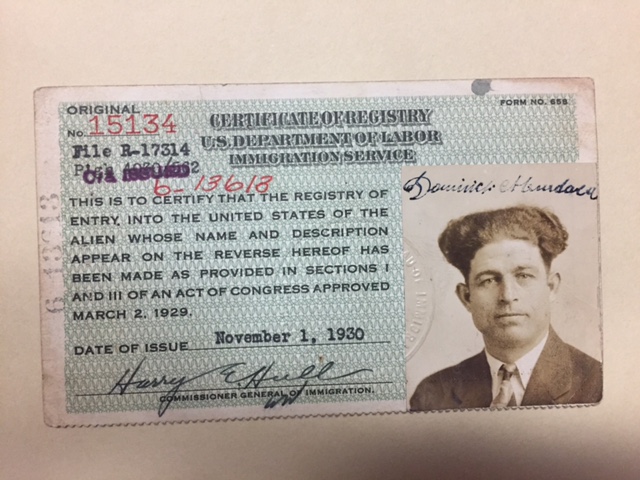 ORIGINAL
No. 15134
CERTIFICATE OF REGISTRY
FORM NO. 658
File R-17314
U.S. DEPARTMENT OF LABOR
IMMIGRATION SERVICE
C/A ISSUED
6-13613
THIS IS TO CERTIFY THAT THE REGISTRY OF
ENTRY INTO THE UNITED STATES OF THE
ALIEN WHOSE NAME AND DESCRIPTION
APPEAR ON THE REVERSE HEREOF HAS
BEEN MADE AS PROVIDED IN SECTIONS I
AND III OF AN ACT OF CONGRESS APPROVED
MARCH 2, 1929.
DATE OF ISSUE November 1, 1930
Harry E Hull
COMMISSIONER GENERAL OF IMMIGRATION.
Dominick